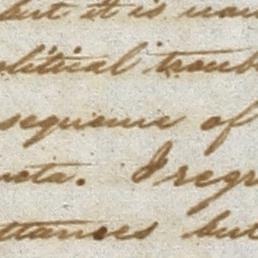 but it is
olitical troub
sequence of
I regr
ttances but